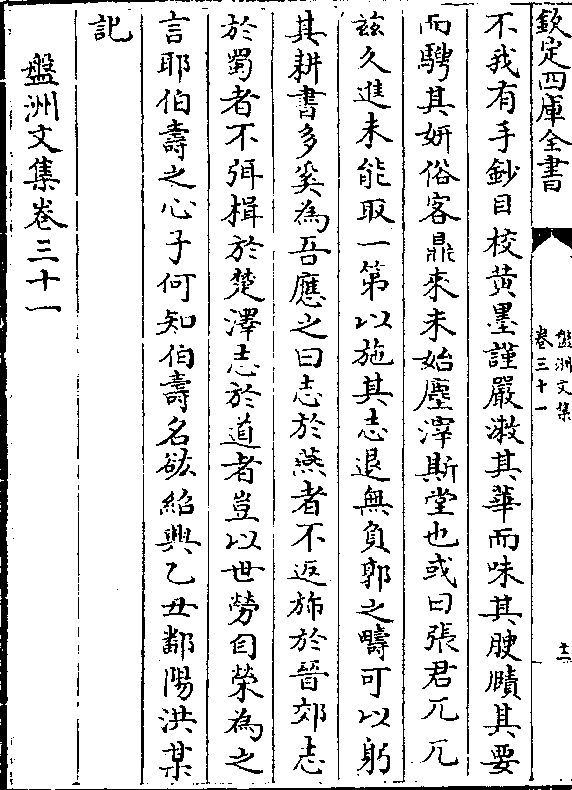 欽定四庫全書
盤洲文集
卷三十一
十二
不我有手鈔目校黄墨謹嚴漱其華而味其腴賾其要
而騁其妍俗客鼎來未始塵滓斯堂也或曰張君兀兀
兹久進未能取一第以施其志退無負郭之疇可以躬
其耕書多奚為吾應之曰志於燕者不返斾於晉郊志
於蜀者不弭楫於楚澤志於道者豈以世勞匄榮為之
言耶伯壽之心子何知伯壽名紘紹興乙丑鄱陽洪某
記
盤洲文集卷三十一